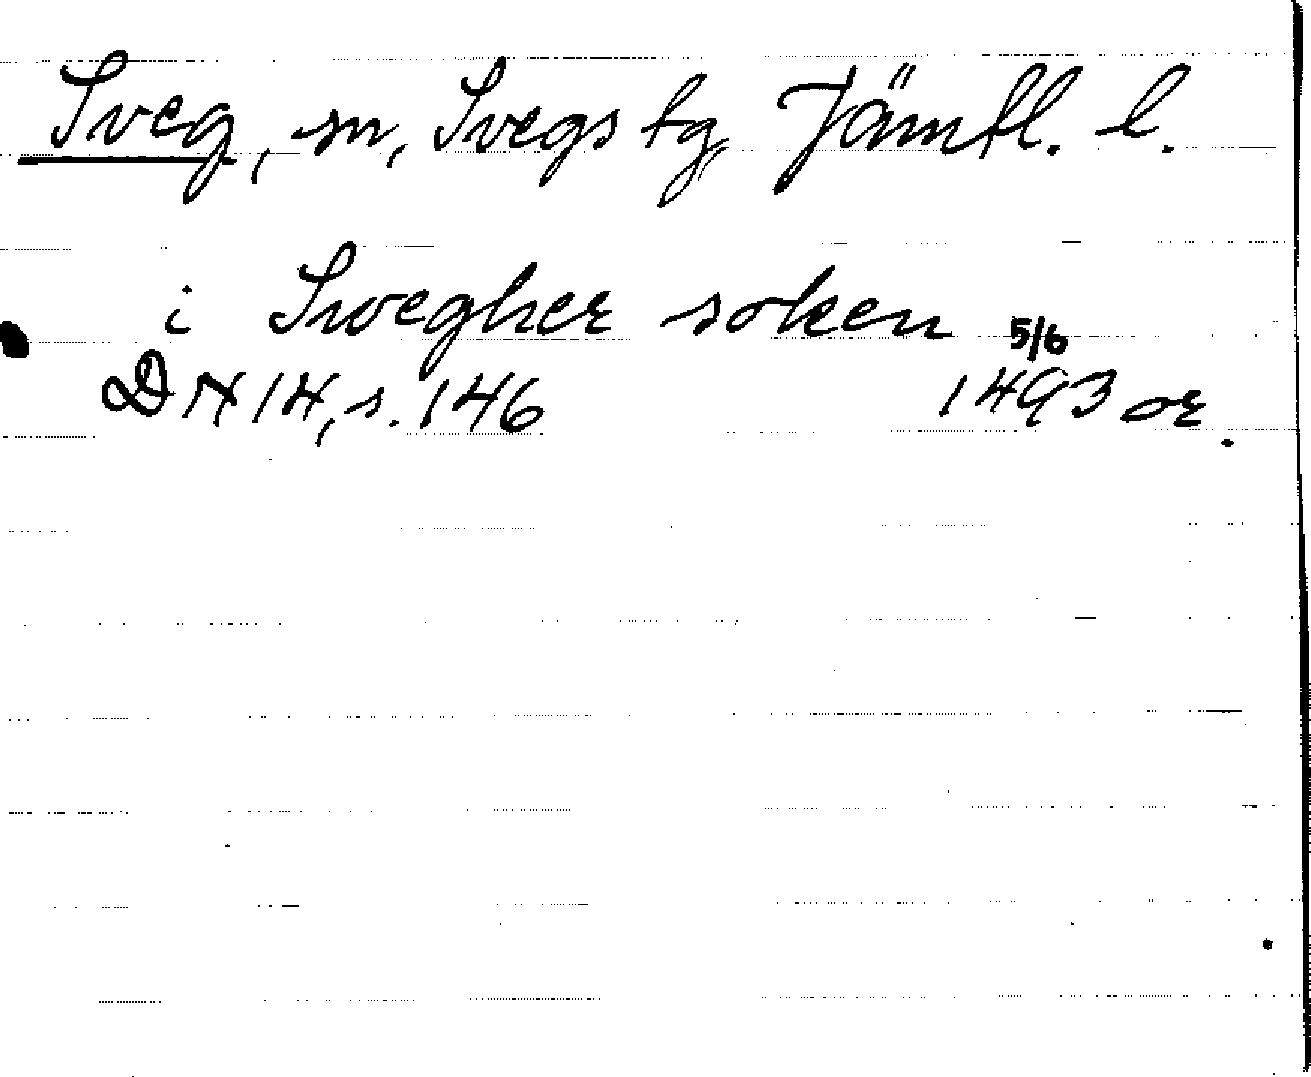 Sveg, sn, Svegs tg, Jämtl. l.
i Swegher soken
5/6
DN 14, s. 146 1493 or.